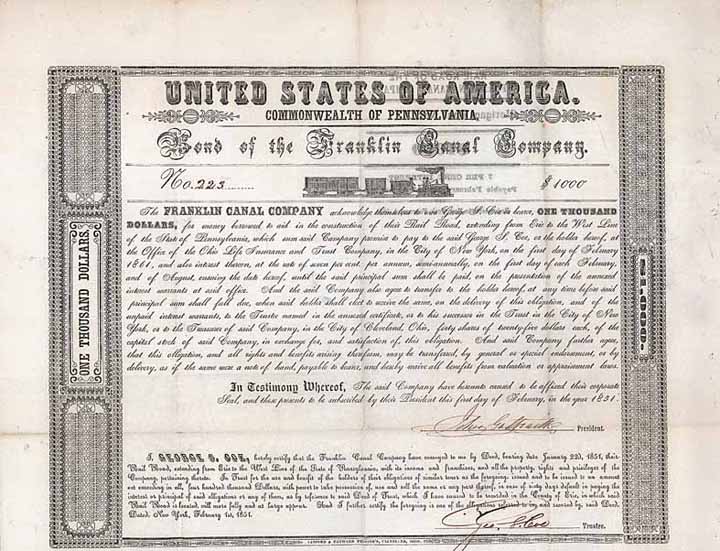 UNITED STATES OF AMERICA.
COMMONWEALTH OF PENNSYLVANIA
Bond of the Franklin Canal Company.
No. 223
$ 1000
The FRANKLIN CANAL COMPANY acknowledge themselves to owe George S. Coe or bearer, ONE THOUSAND
DOLLARS, for money borrowed to aid in the construction of their Rail Road, extending from Erie to the West Line
of the State of Pennsylvania, which sum said Company promise to pay to the said George S. Coe, or the holder hereof, at
the Office of the Ohio Life Insurance and Trust Company, in the City of New York, on the first day of February
1861, and also interest thereon, at the rate of seven per cent. per annum, semi-annually, on the first day of each February,
and of August, ensuing the date hereof, until the said principal sum shall be paid, on the presentation of the annexed
interest warrants at said office. And the said Company also agree to transfer to the holder hereof, at any time before said
principal sum shall fall due, when said holder shall elect to receive the same, on the delivery of this obligation, and of the
unpaid interest warrants, to the Trustee named in the annexed certificate, or to his successor in the Trust in the City of New
York, or to the Treasurer of said Company, in the City of Cleveland, Ohio, forty shares of twenty-five dollars each, of the
capital stock of said Company, in exchange for, and satisfaction of, this obligation. And said Company further agree,
that this obligation, and all rights and benefits arising therefrom, may be transferred, by general or special endorsement, or by
delivery, as if the same were a note of hand, payable to bearer, and hereby waive all benefits from valuation or appraisement laws.
In Testimony Whereof, The said Company have hereunto caused to be affixed their corporate
Seal, and these presents to be subscribed by their President this first day of February, in the year 1851.
President.
I, GEORGE S. COE, hereby certify that the Franklin Canal Company have conveyed to me by Deed, bearing date January 22d, 1851, their
Rail Road, extending from Erie to the West Line of the State of Pennsylvania, with its income and franchises, and all the property, rights and privileges of the
Company, pertaining thereto. In Trust for the use and benefit of the holders of their obligations of similar tenor as the foregoing, issued and to be issued to an amount
not exceeding in all, four hundred thousand Dollars, with power to take possession of, use and sell the same or any part thereof, in case of sixty days default in paying the
interest or principal of said obligations or any of them, as by reference to said Deed of Trust, which I have caused to be recorded in the County of Erie, in which said
Rail Road is located, will more fully and at large appear. And I further certify the foregoing is one of the obligations referred to and secured by, said Deed.
Dated, New York, February 1st, 1851.
Geo. S. Coe
Trustee.
ONE THOUSAND DOLLARS.